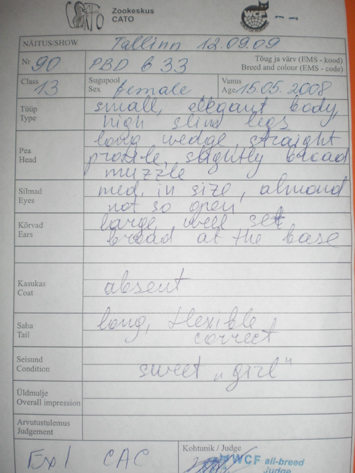 CATO
Zookeskus
CATO
NÄITUS/SHOW Tallinn 12.09.09
Nr 90 PBD 633 Tõug ja värv (EMS - kood)
Breed and colour (EMS - code)
Class 13 Sugupool
Sex female Vanus
Age 15.05.2008
Tüüp
Type small, elegant body
high slind legs
Pea
Head long wedge, straight
profile, slightly broad
muzzle
Silmad
Eyes med. in size, almond
not so open
Kõrvad
Ears large, well set
broad at the base
Kasukas
Coat absent
Saba
Tail long, flexible
correct
Seisund
Condition sweet „girl"
Üldmulje
Overall impression
Arvutustulemus
Judgement
Ex 1 CAC
Kohtunik / Judge
WCF all-breed
Judge